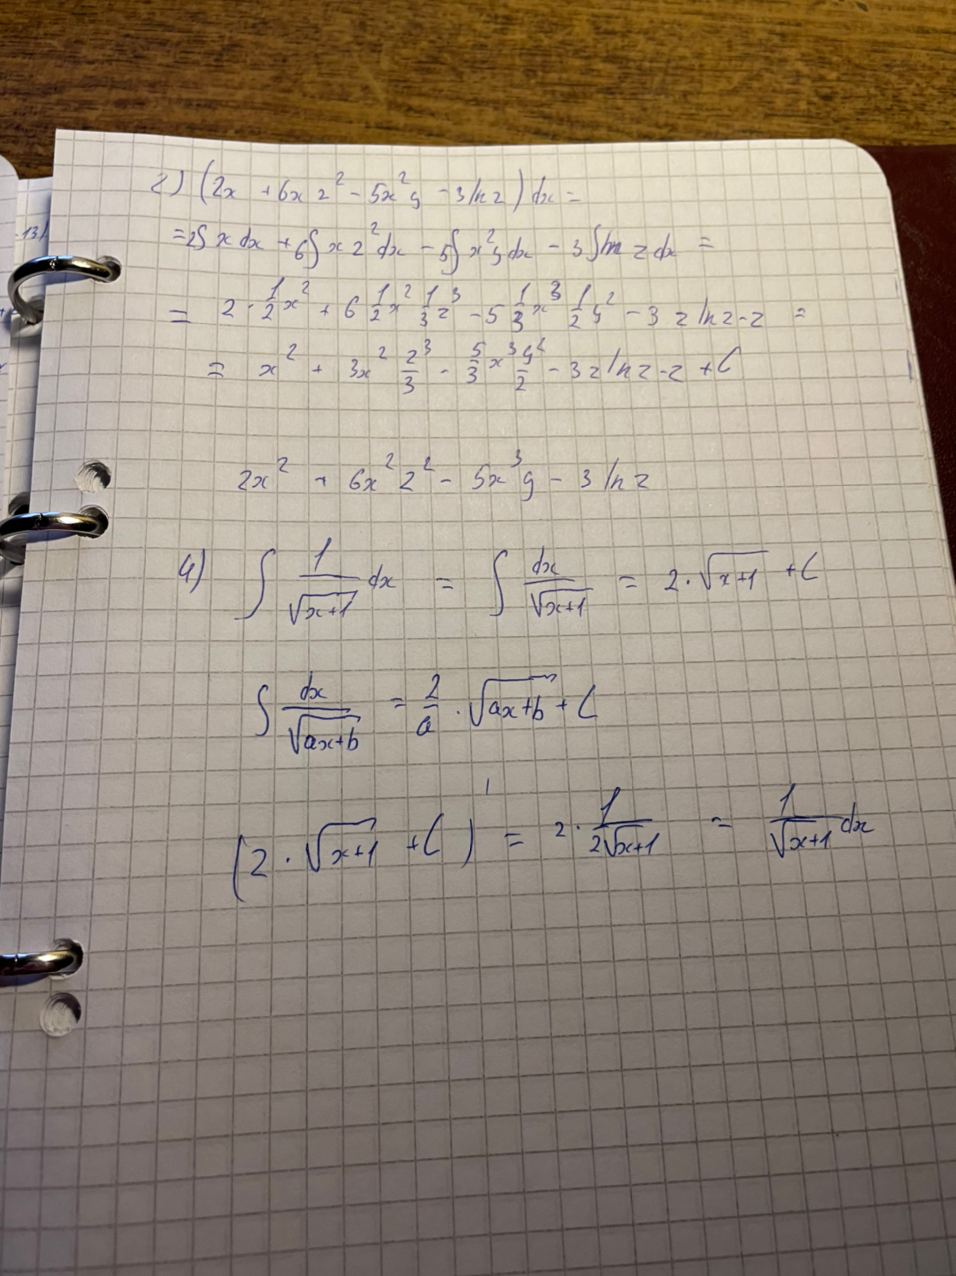 13)
2) (2x + 6x z² - 5x²y - 3 ln z) dx =
= 2∫ x dx + 6∫ x z² dx - 5∫ x²y dx - 3 ∫ ln z dx =
= 2 · 1/2 x² + 6 1/2 x² 1/3 z³ - 5 1/3 x³ 1/2 y² - 3 z ln z - z =
= x² + 3x² z³/3 - 5/3 x³ y²/2 - 3 z ln z - z + C
2x² + 6x² z² - 5x³ y - 3 ln z
4) ∫ 1/√(x+1) dx = ∫ dx/√(x+1) = 2 · √(x+1) + C
∫ dx/√(ax+b) = 2/a · √(ax+b) + C
(2 · √(x+1) + C)' = 2 · 1/(2√(x+1)) = 1/√(x+1) dx